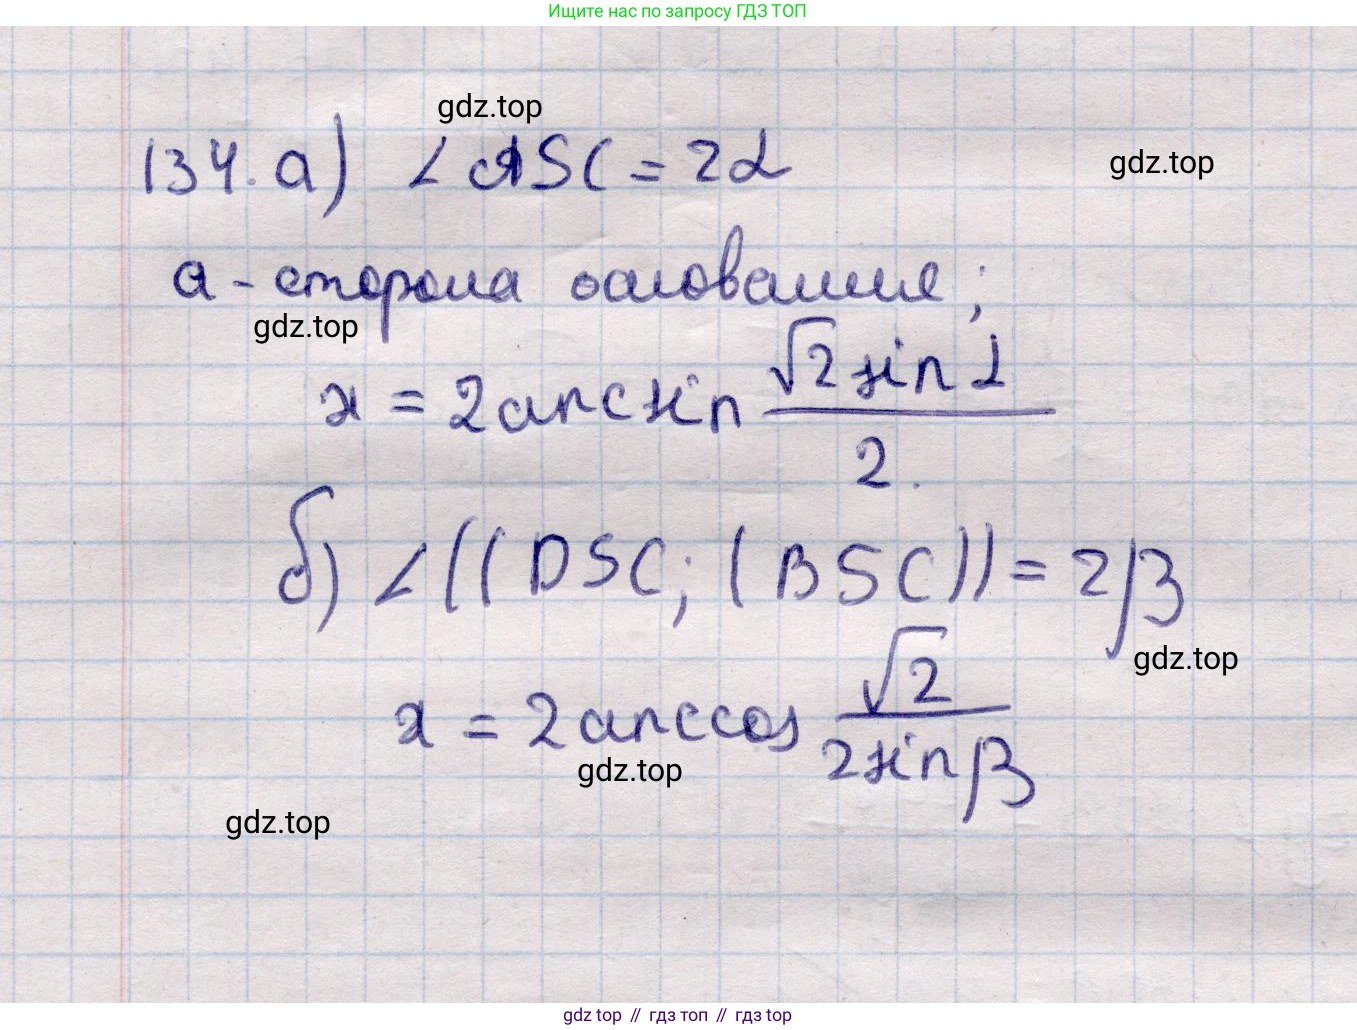 Ищите нас по запросу ГДЗ ТОП
gdz.top
134. а) ∠ASC = 2α
gdz.top
а - сторона основания;
gdz.top
x = 2arcsin √2 sin α / 2.
б) ∠((DSC; (BSC)) = 2β
gdz.top
x = 2arccos √2 / 2sin β
gdz.top
gdz.top
gdz top // гдз топ // гдз top